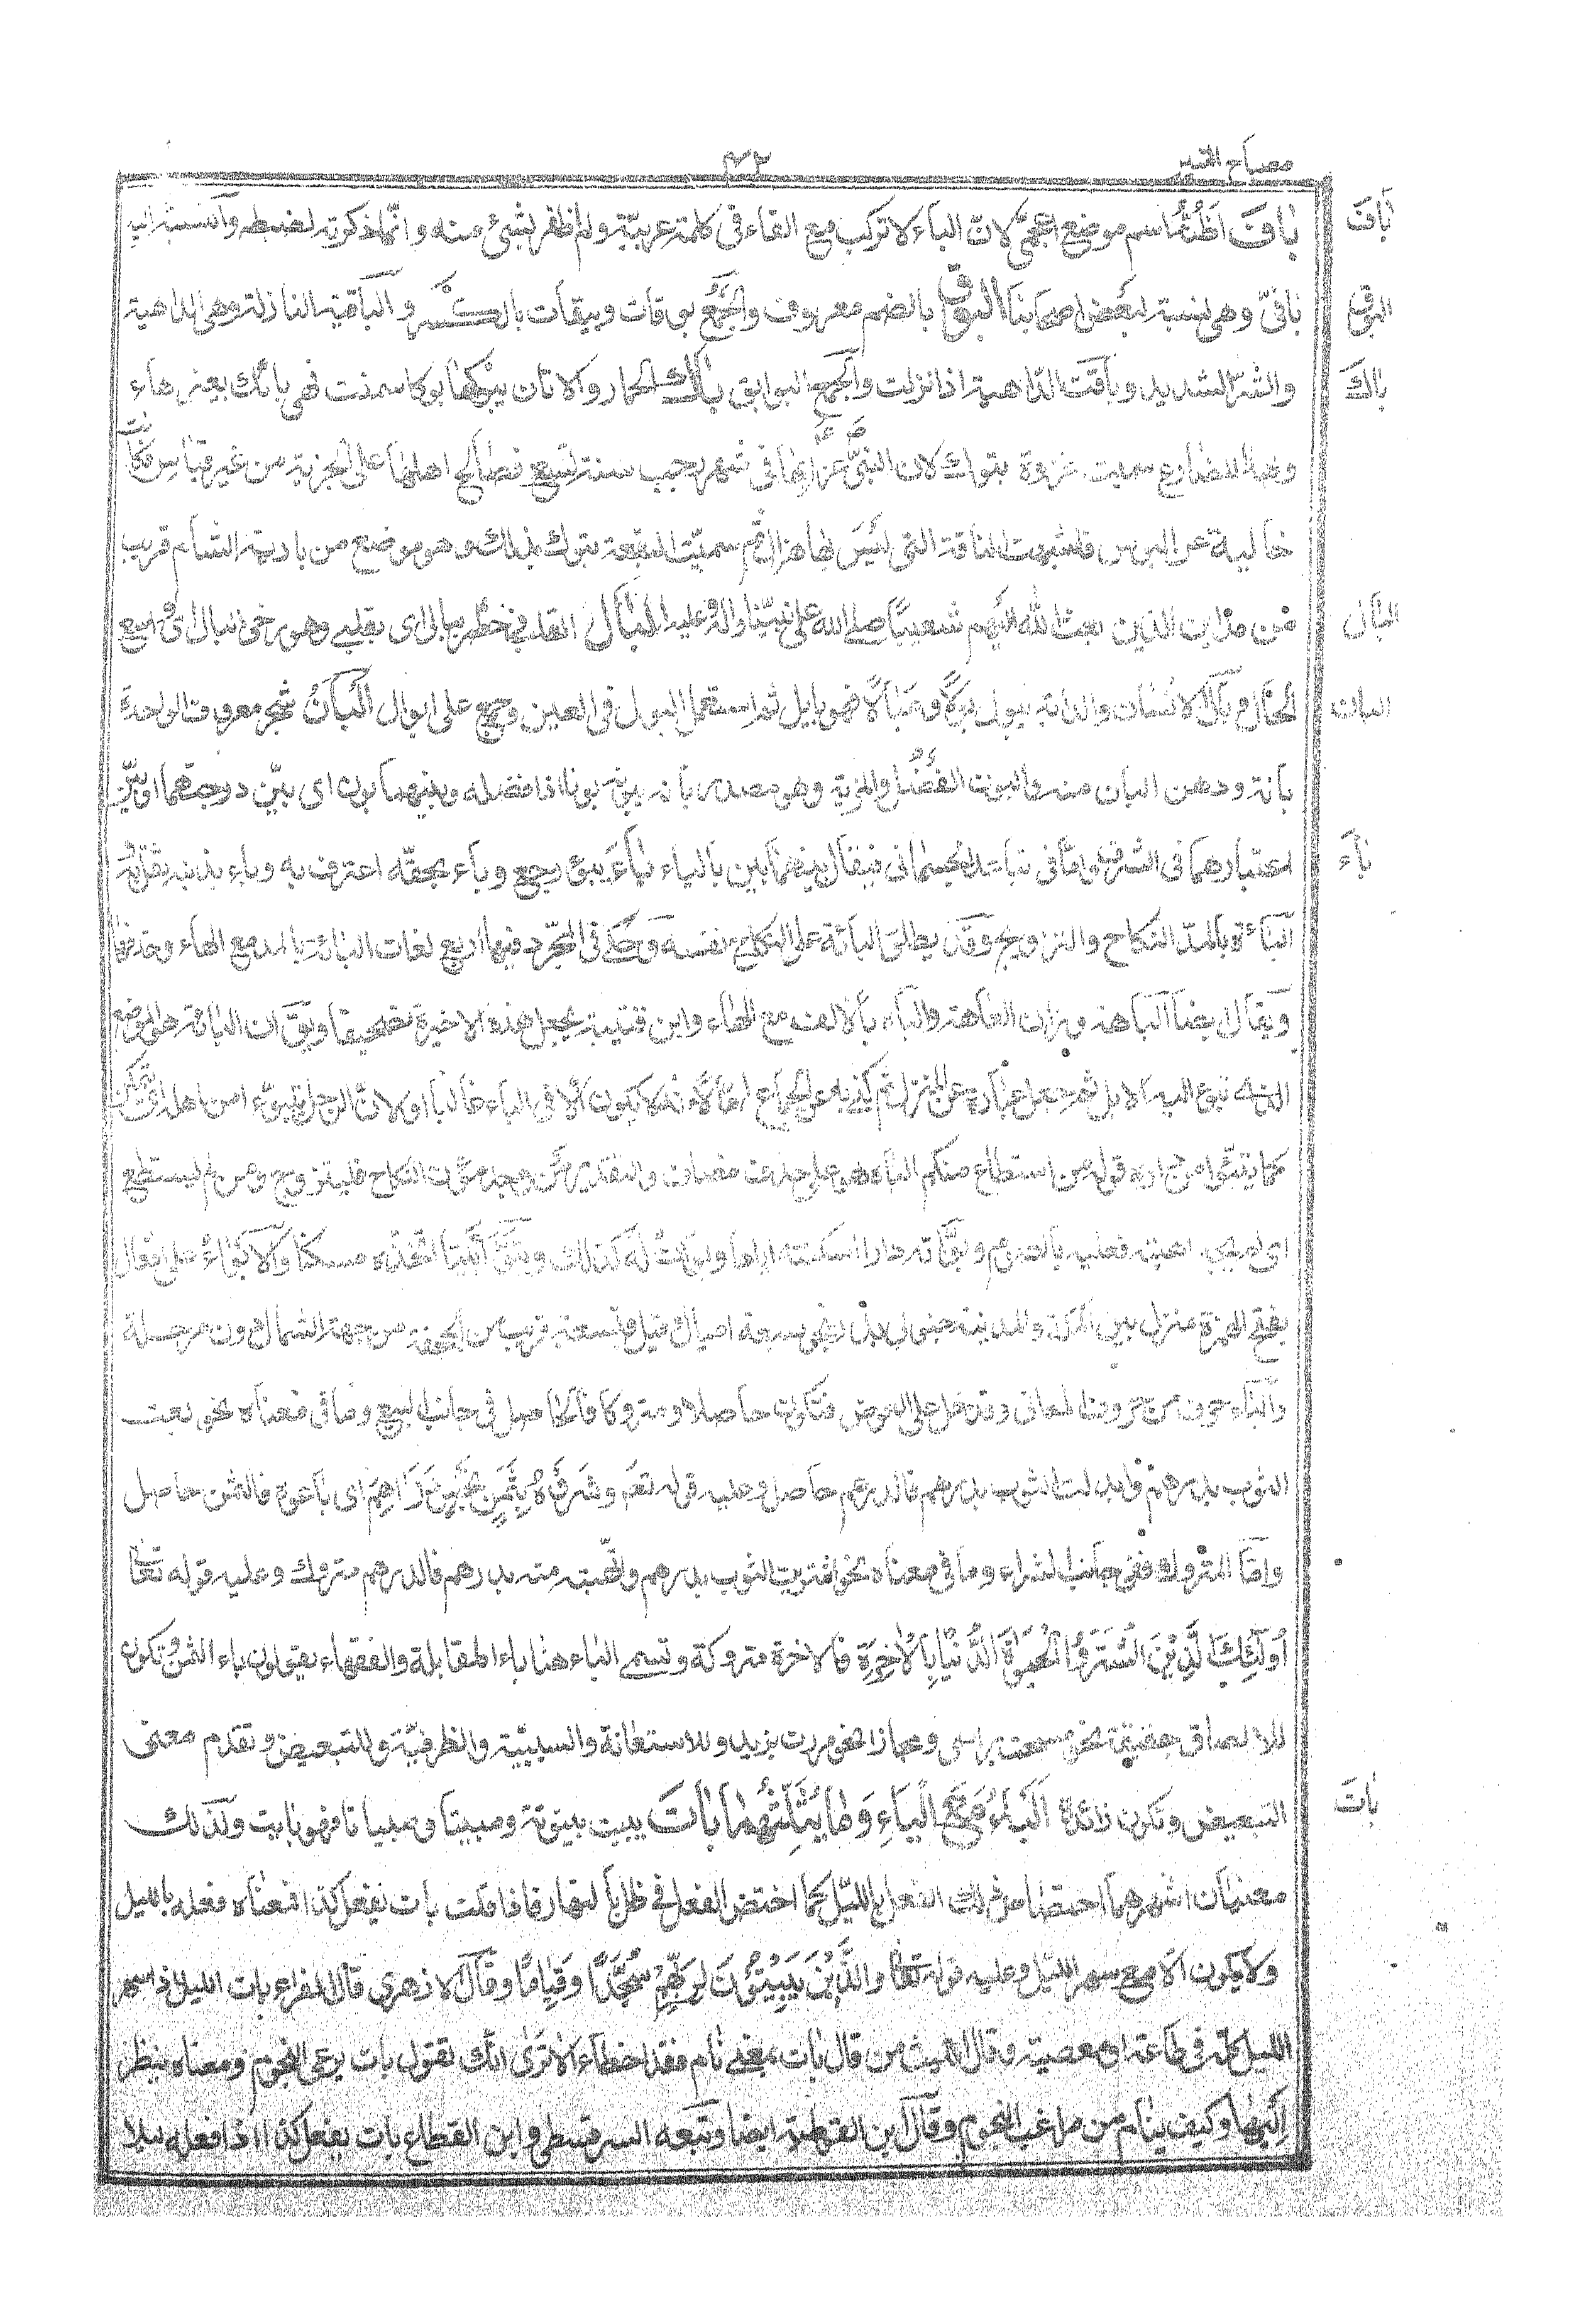 مصباح المنير
٤٢
بَافَ اظُنُّهَا اسم موضع اعجمىّ لانّ الباء لا تركب مع الفاء فى كلمة عربيّة ولم اظفر لشئ منه وانّما ذكرته لضبطه والنسبة اليه
بَافَ
بافىّ وهى نسبة لبعض اصحابنا البوق بالضم معروف والجمع بوقات وبيقات بالكسر والباقية النازلة وهى الداهية
البوق
والشرّ الشديد وباقت الدّاهية اذا نزلت والجمع البوايق باك الحمار والاتان يبوكها بوكا سمنت فهى بائك بغير هاء
باك
وبهذا المضارع سميت غزوة تبوك لان النبىّ غزاها فى شهر رجب سنة تسع فصالح اهلها على الجزية من غير قتال فكانت
خالية عن البوس فاشبهت الناقة التى ليس بها هزال ثم سميت البقعة تبوك بذلك وهو موضع من بادية الشام قريب
من مداين الذين بعث الله اليهم شعيبًا صلے الله على نبيّنا واله وعليه البال القلب خطر ببالى اى بقلبے وهو رخىّ البال اى واسع
البال
الحال وبال الانسان والدابة يبول بولا ومبالا فهو بايل ثم استعمل البول فى العين وجمع على ابوال البان شجر معروف الواحدة
البان
بانة ودهن البان منه والبون الفضل والمزية وهو مصدر بانه يبونه بونا اذا فضله وبينهما بون اى بين درجتهما او بين
اعتبارهما فى الشرف واما فى تباعد الجسمانى فيقال بينهما بين بالياء باء يبوء رجع وباء بحقّه اعترف به وباء بذنبه ثقل به
باء
الباءة بالمدّ النكاح والتزويج وقد يطلق الباءة على النكاح نفسه وحكے فى المجرّد فيها اربع لغات الباءة بالمد مع الهاء وحذفها
ويقال ايضا الباهة وزان العاهة والباه بالالف مع الهاء وابن قتيبة يجعل هذه الاخيرة تصحيفا ويق ان الباءة هو الموضع
الذے تبوء اليه الابل ثم جعل عبارة عن المنزل ثم كنى به عن الجماع امّا لانه لا يكون الّا فى الباءة غالبا او لانّ الرجل يتبوّء من اهله اى يتمكن
كما يتبوّا من داره قوله من استطاع منكم الباه هو على حذف مضاف والتقدير من وجد مؤن النكاح فليتزوج ومن لم يستطع
اى لم يجد اهبته فعليه بالصوم وبوّاته دارا اسكنته اياها وبوّات له كذلك وتبوّا بيتا اتخذه مسكنا والابواء على افعال
بفتح الهمزة منزل بين مكة والمدينة قريب من الجحفة من جهة الشمال دون مرحلة
والباء حرف من حروف المعانى وتدخل على العوض فتكون حاصلا ومتروكا فالحاصل فى جانب البيع وما فى معناه نحو بعت
الثوب بدرهم وابدلت الثوب بدرهم فالدرهم حاصل وعليه قوله تعم وشروه بثمن بخس دراهم اى باعوه فالثمن حاصل
وامّا المتروك ففى جانب الشراء وما فى معناه نحو اشتريت الثوب بدرهم واتهبته منه بدرهم فالدرهم متروك وعليه قوله تعا
اُولٓئِكَ الَّذِيْنَ اشْتَرَوُا الْحَيٰوةَ الدُّنْيَا بِالْاٰخِرَةِ فالاخرة متروكة وتسمے الباء هنا باء المقابلة والفقهاء يقولون باء الثمن وتكون
للالصاق حقيقة نحو مسحت براسى ومجازا نحو مررت بزيد وللاستعانة والسببيّة والظرفيّة وللتبعيض وتقدم معنى
التبعيض وتكون زائدة اَلْبَاءُ مَعَ الْيَاءِ وَمَا يُثَلِّثُهُمَا بَاتَ يبيت بيتوتة ومبيتا ومباتا فهو بايت ولذلك
بَاتَ
معنيان اشهرهما اختصاص ذلك الفعل بالليل كما اختصّ الفعل فے ظل بالنهار فاذا قلت بات يفعل كذا فمعناه فعله بالليل
ولا يكون الّا مع سهر الليل وعليه قوله تعا وَالَّذِيْنَ يَبِيْتُوْنَ لِرَبِّهِمْ سُجَّدًا وَّقِيَامًا وقال الازهرى قال الفراء بات الليل اذا سهر
الليل كلّه فى طاعة او معصية وقال الليث من قال بات بمعنے نام فقد اخطاء الا ترى انك تقول بات يرعى النجوم ومعناه ينظر
اليها وكيف ينام من يراغب النجوم وقال ابن القوطية ايضا وتبعه السرقسطى وابن القطاع بات يفعل كذا اذا فعله ليلا